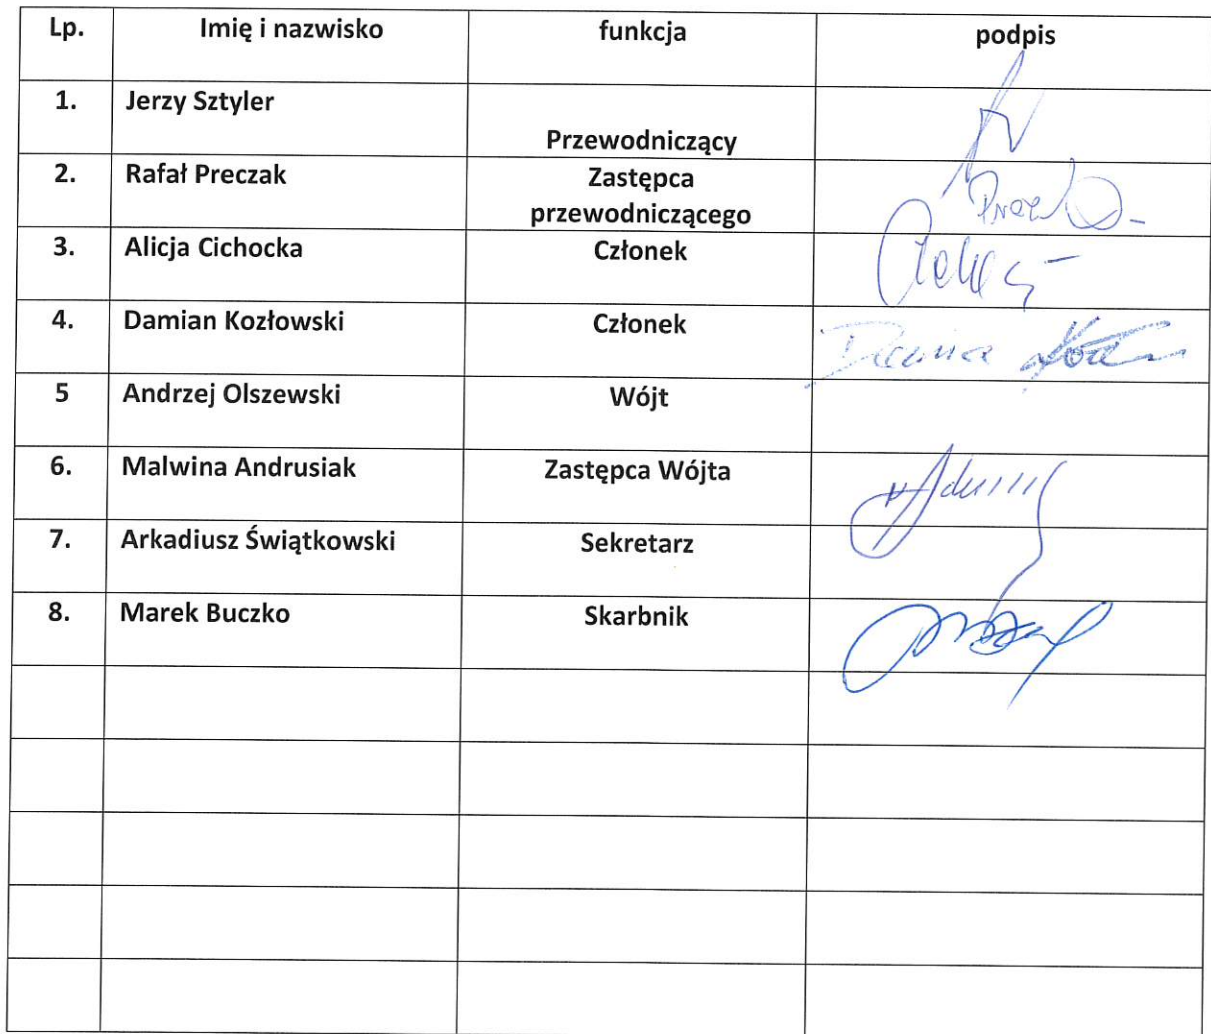 Lp. Imię i nazwisko funkcja podpis
1. Jerzy Sztyler
Przewodniczący
2. Rafał Preczak Zastępca
przewodniczącego
3. Alicja Cichocka Członek
4. Damian Kozłowski Członek
5 Andrzej Olszewski Wójt
6. Malwina Andrusiak Zastępca Wójta
7. Arkadiusz Świątkowski Sekretarz
8. Marek Buczko Skarbnik